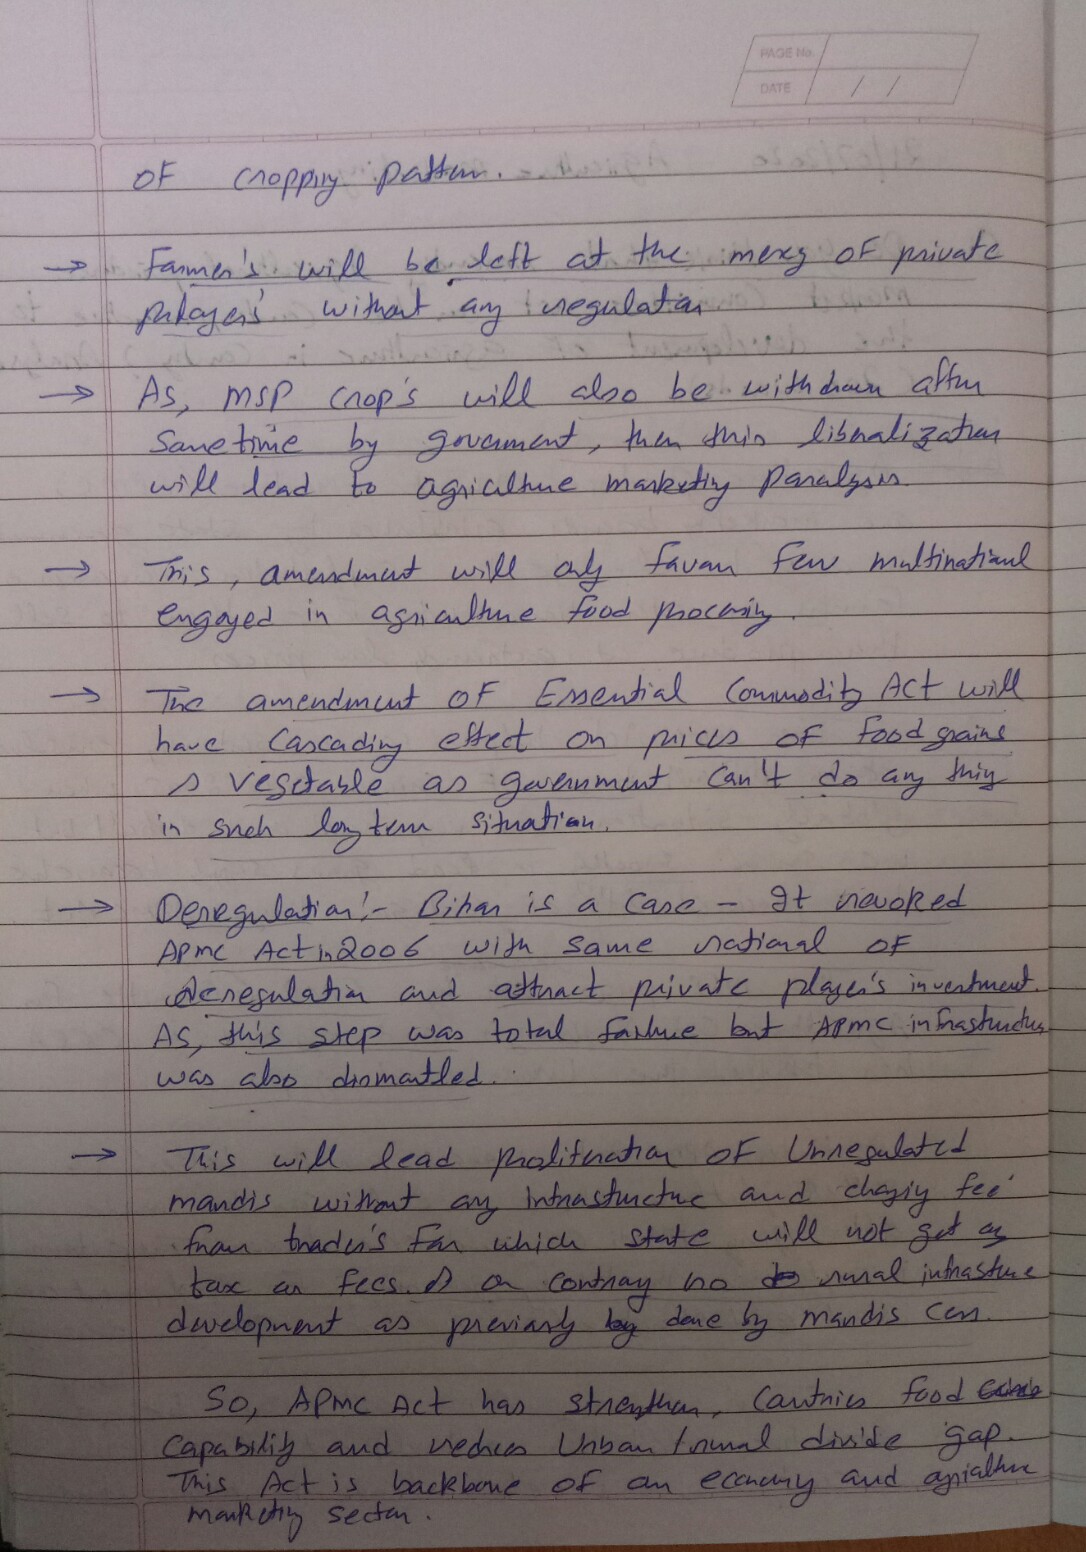 PAGE No.
DATE / /
of cropping pattern.
→ Farmer's will be left at the mercy of private
players' without any regulation
→ As, MSP crop's will also be withdrawn after
sometime by government, then this liberalization
will lead to agriculture marketing paralysis.
→ This, amendment will only favour few multinational
engaged in agriculture food processing.
→ The amendment of Essential Commodity Act will
have cascading effect on prices of food grains
& vegetable as government can't do any thing
in such long term situation.
→ Deregulation:- Bihar is a case - It revoked
APMC Act in 2006 with same rational of
deregulation and attract private player's investment.
As, this step was total failure but APMC infrastructure
was also dismantled.
→ This will lead proliferation of Unregulated
mandis without any infrastructure and charging fee
from trader's for which state will not get any
tax or fees. & on contrary no rural infrastructure
development as previously done by mandis cess.
So, APMC Act has strengthen, countries food
capability and reduces Urban/rural divide gap.
This Act is backbone of our economy and agriculture
marketing sector.